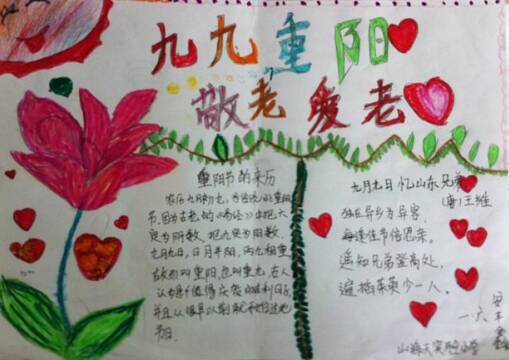 九九重阳
敬老爱老
重阳节的来历
农历九月初九，为传统的重阳
节。因为古老的《易经》中把六
定为阴数，把九定为阳数，
九月九日，日月平阳，两九相重
故而叫重阳，也叫重九，古人
认为是个值得庆贺的吉利日子，
并且从很早以前就开始过此
节日。
九月九日忆山东兄弟
(唐)王维
独在异乡为异客，
每逢佳节倍思亲。
遥知兄弟登高处，
遍插茱萸少一人。
一.六